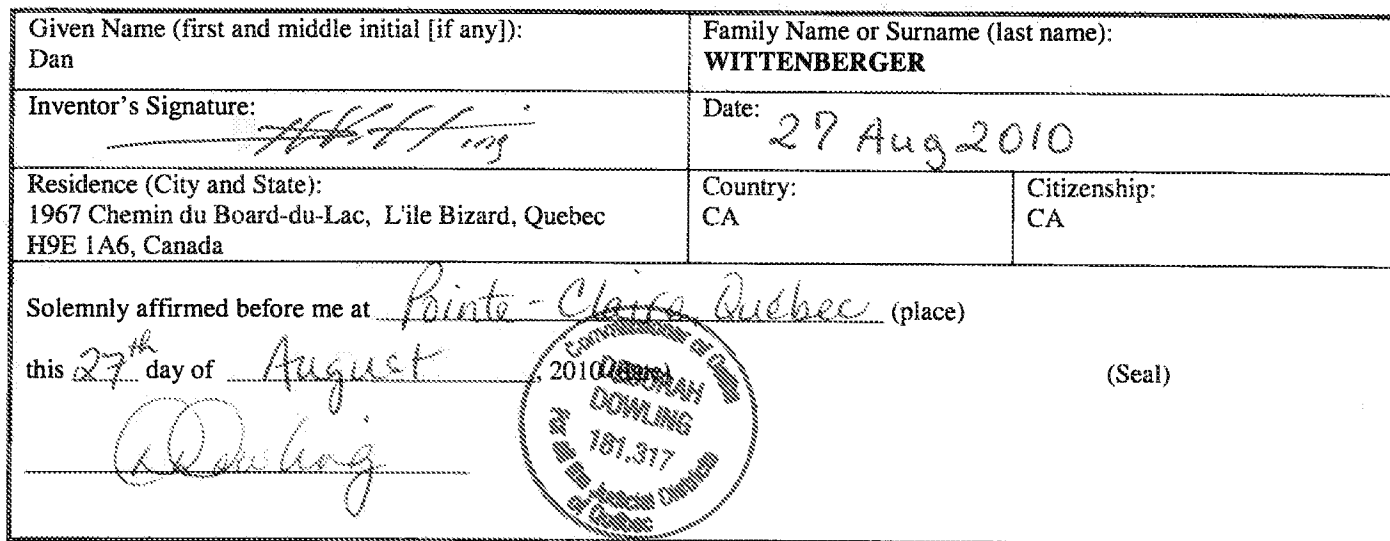 Given Name (first and middle initial [if any]):
Dan
Family Name or Surname (last name):
WITTENBERGER
Inventor's Signature:
Date: 27 Aug 2010
Residence (City and State):
1967 Chemin du Board-du-Lac, L'ile Bizard, Quebec
H9E 1A6, Canada
Country:
CA
Citizenship:
CA
Solemnly affirmed before me at Pointe-Claire, Québec (place)
this 27th day of August, 2010 (date)
(Seal)
Commissioner of Oaths
DEBORAH
DOWLING
181,317
For all the Judicial Districts
of Québec